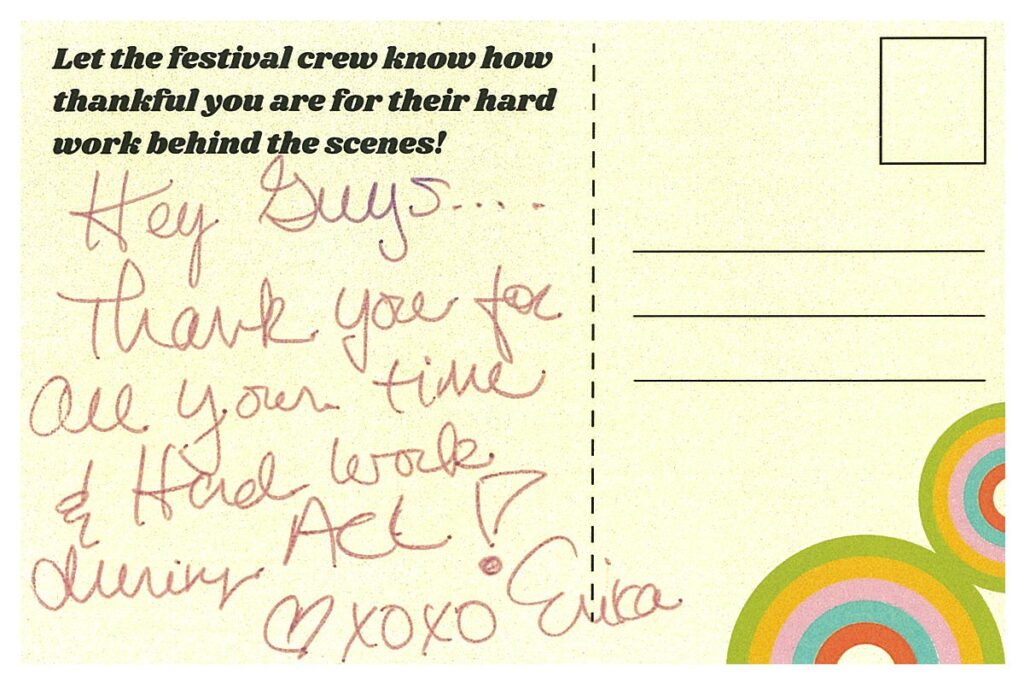 Let the festival crew know how
thankful you are for their hard
work behind the scenes!
Hey Guys....
Thank you for
all your time
& Hard work
during ACL!
♡ XOXO Erica